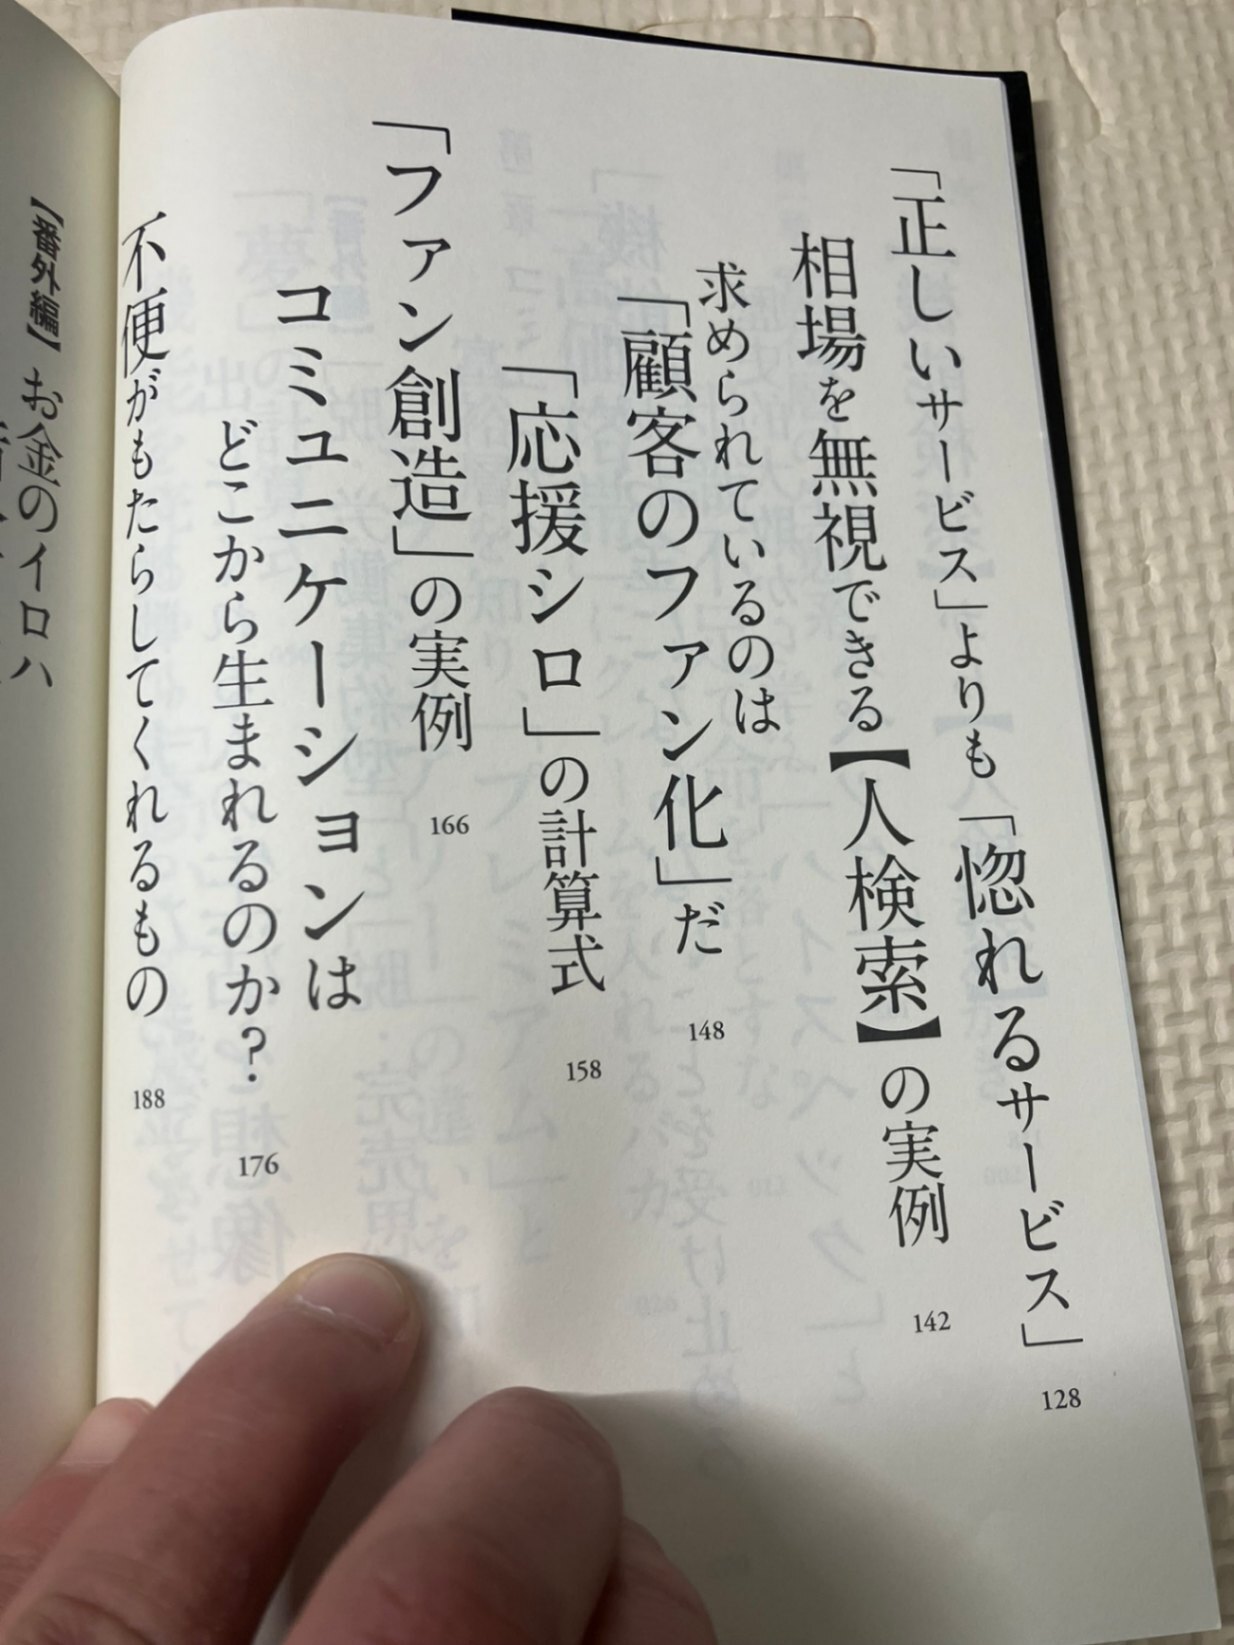 「正しいサービス」よりも「惚れるサービス」
128
相場を無視できる【人検索】の実例
142
求められているのは
「顧客のファン化」だ
148
「応援シロ」の計算式
158
「ファン創造」の実例
166
コミュニケーションは
どこから生まれるのか?
176
不便がもたらしてくれるもの
188
【番外編】お金のイロハ